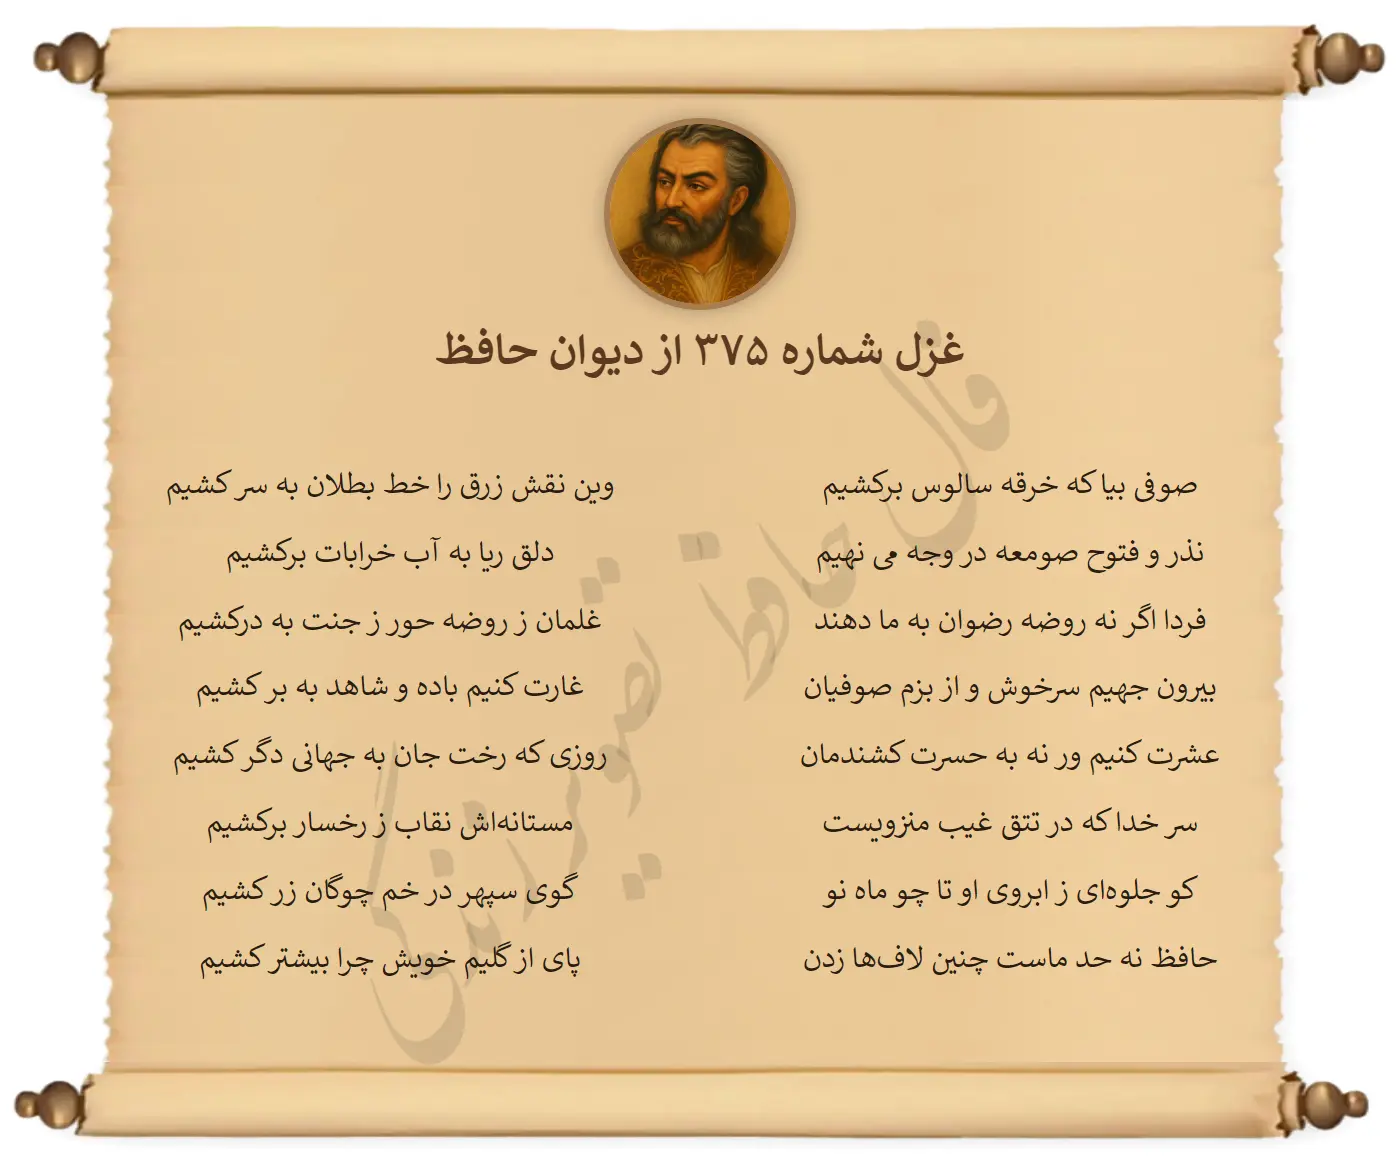 غزل شماره ۳۷۵ از دیوان حافظ
صوفی بیا که خرقه سالوس برکشیم
وین نقش زرق را خط بطلان به سر کشیم
نذر و فتوح صومعه در وجه می نهیم
دلق ریا به آب خرابات برکشیم
فردا اگر نه روضه رضوان به ما دهند
غلمان ز روضه حور ز جنت به درکشیم
بیرون جهیم سرخوش و از بزم صوفیان
غارت کنیم باده و شاهد به بر کشیم
عشرت کنیم ور نه به حسرت کشندمان
روزی که رخت جان به جهانی دگر کشیم
سر خدا که در تتق غیب منزویست
مستانه‌اش نقاب ز رخسار برکشیم
کو جلوه‌ای ز ابروی او تا چو ماه نو
گوی سپهر در خم چوگان زر کشیم
حافظ نه حد ماست چنین لاف‌ها زدن
پای از گلیم خویش چرا بیشتر کشیم
فال حافظ تصویر زندگی